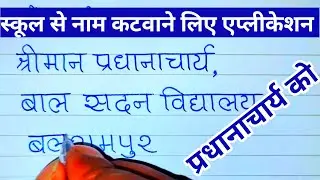 स्कूल से नाम कटवाने लिए एप्लीकेशन
श्रीमान प्रधानाचार्य,
बाल सदन विद्यालय
बलरामपुर
प्रधानाचार्य को